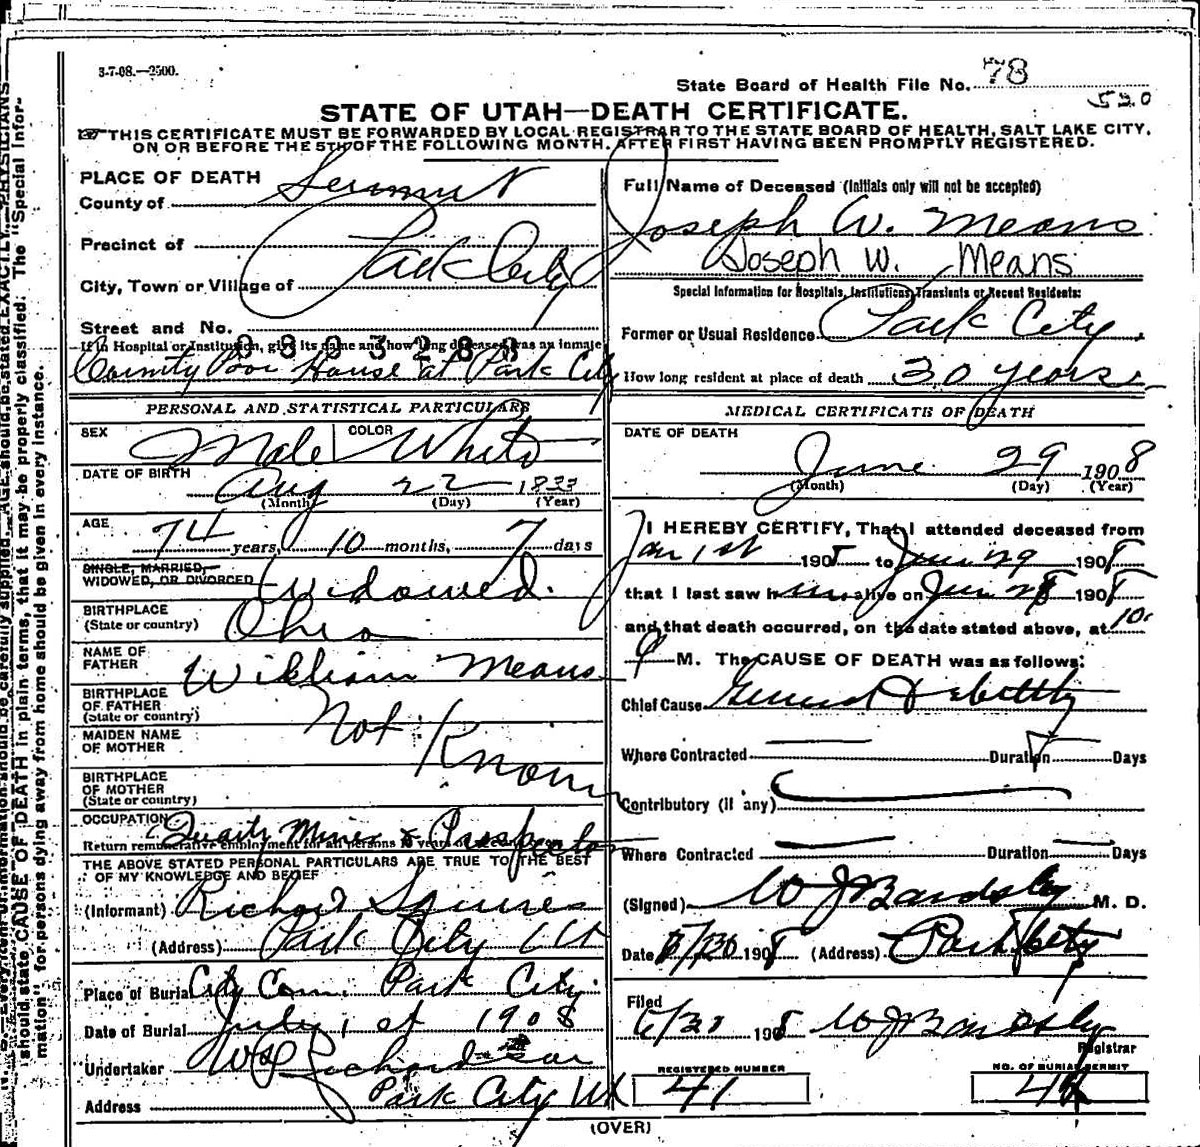 3-7-08.—2500.
State Board of Health File No. 78
520
STATE OF UTAH—DEATH CERTIFICATE.
THIS CERTIFICATE MUST BE FORWARDED BY LOCAL REGISTRAR TO THE STATE BOARD OF HEALTH, SALT LAKE CITY,
ON OR BEFORE THE 5TH OF THE FOLLOWING MONTH. AFTER FIRST HAVING BEEN PROMPTLY REGISTERED.
PLACE OF DEATH
County of Summit
Precinct of
City, Town or Village of Park City
Street and No.
If in Hospital or Institution, give its name and how long deceased was an inmate
County Poor House at Park City
Full Name of Deceased (Initials only will not be accepted)
Joseph W. Means
Joseph W. Means
Special Information for Hospitals, Institutions, Transients or Recent Residents:
Former or Usual Residence Park City
How long resident at place of death 30 years
PERSONAL AND STATISTICAL PARTICULARS
SEX Male COLOR White
DATE OF BIRTH Aug 22 1833
(Month) (Day) (Year)
AGE 74 years, 10 months, 7 days
SINGLE, MARRIED,
WIDOWED, OR DIVORCED Widowed.
BIRTHPLACE
(State or country) Ohio
NAME OF
FATHER William Means
BIRTHPLACE
OF FATHER
(State or country) Not Known
MAIDEN NAME
OF MOTHER
BIRTHPLACE
OF MOTHER
(State or country)
OCCUPATION Quartz Miner & Prospector
Return remunerative employment for all persons 10 years
THE ABOVE STATED PERSONAL PARTICULARS ARE TRUE TO THE BEST
OF MY KNOWLEDGE AND BELIEF
(Informant) Richard Squires
(Address) Park City Ut
Place of Burial City Cem. Park City.
Date of Burial July 1st 1908
Undertaker W Richardson
Address Park City Ut
MEDICAL CERTIFICATE OF DEATH
DATE OF DEATH
June 29 1908
(Month) (Day) (Year)
I HEREBY CERTIFY, That I attended deceased from
Jan 1st 1908 to Jun 29 1908
that I last saw him alive on Jun 28 1908
and that death occurred, on the date stated above, at 10
P M. The CAUSE OF DEATH was as follows:
Chief Cause General Debility
Where Contracted Duration Days
Contributory (if any)
Where Contracted Duration Days
(Signed) W J Bardsley M. D.
Date 6/30 1908 (Address) Park City
Filed
6/30 1908 W J Bardsley
Registrar
REGISTERED NUMBER
41
NO. OF BURIAL PERMIT
(OVER)
should state CAUSE OF DEATH in plain terms, that it may be properly classified. The "Special Infor-
mation" for persons dying away from home should be given in every instance.